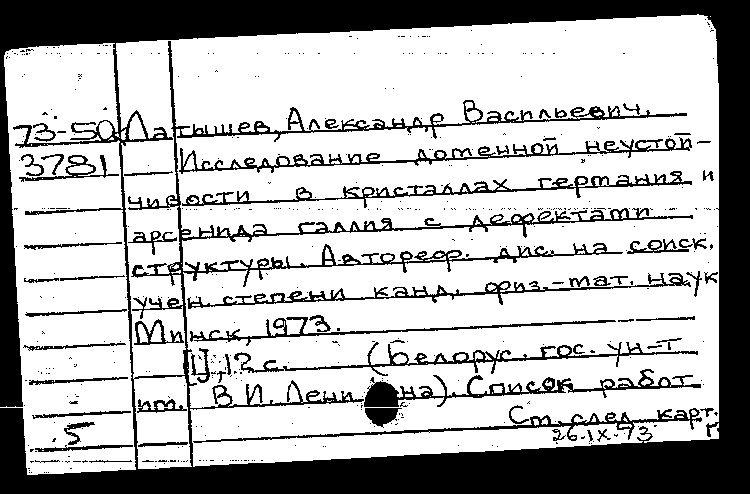 73-50 Латышев, Александр Васильевич.
3781 Исследование доменной неустой-
чивости в кристаллах германия и
арсенида галлия с дефектами
структуры. Автореф. дис. на соиск.
учен. степени канд. физ.-мат. наук
Минск, 1973.
[1], 12 с. (Белорус. гос. ун-т
им. В.И. Ленина). Список работ
5 Ст. след. карт.
26.IX.73 г